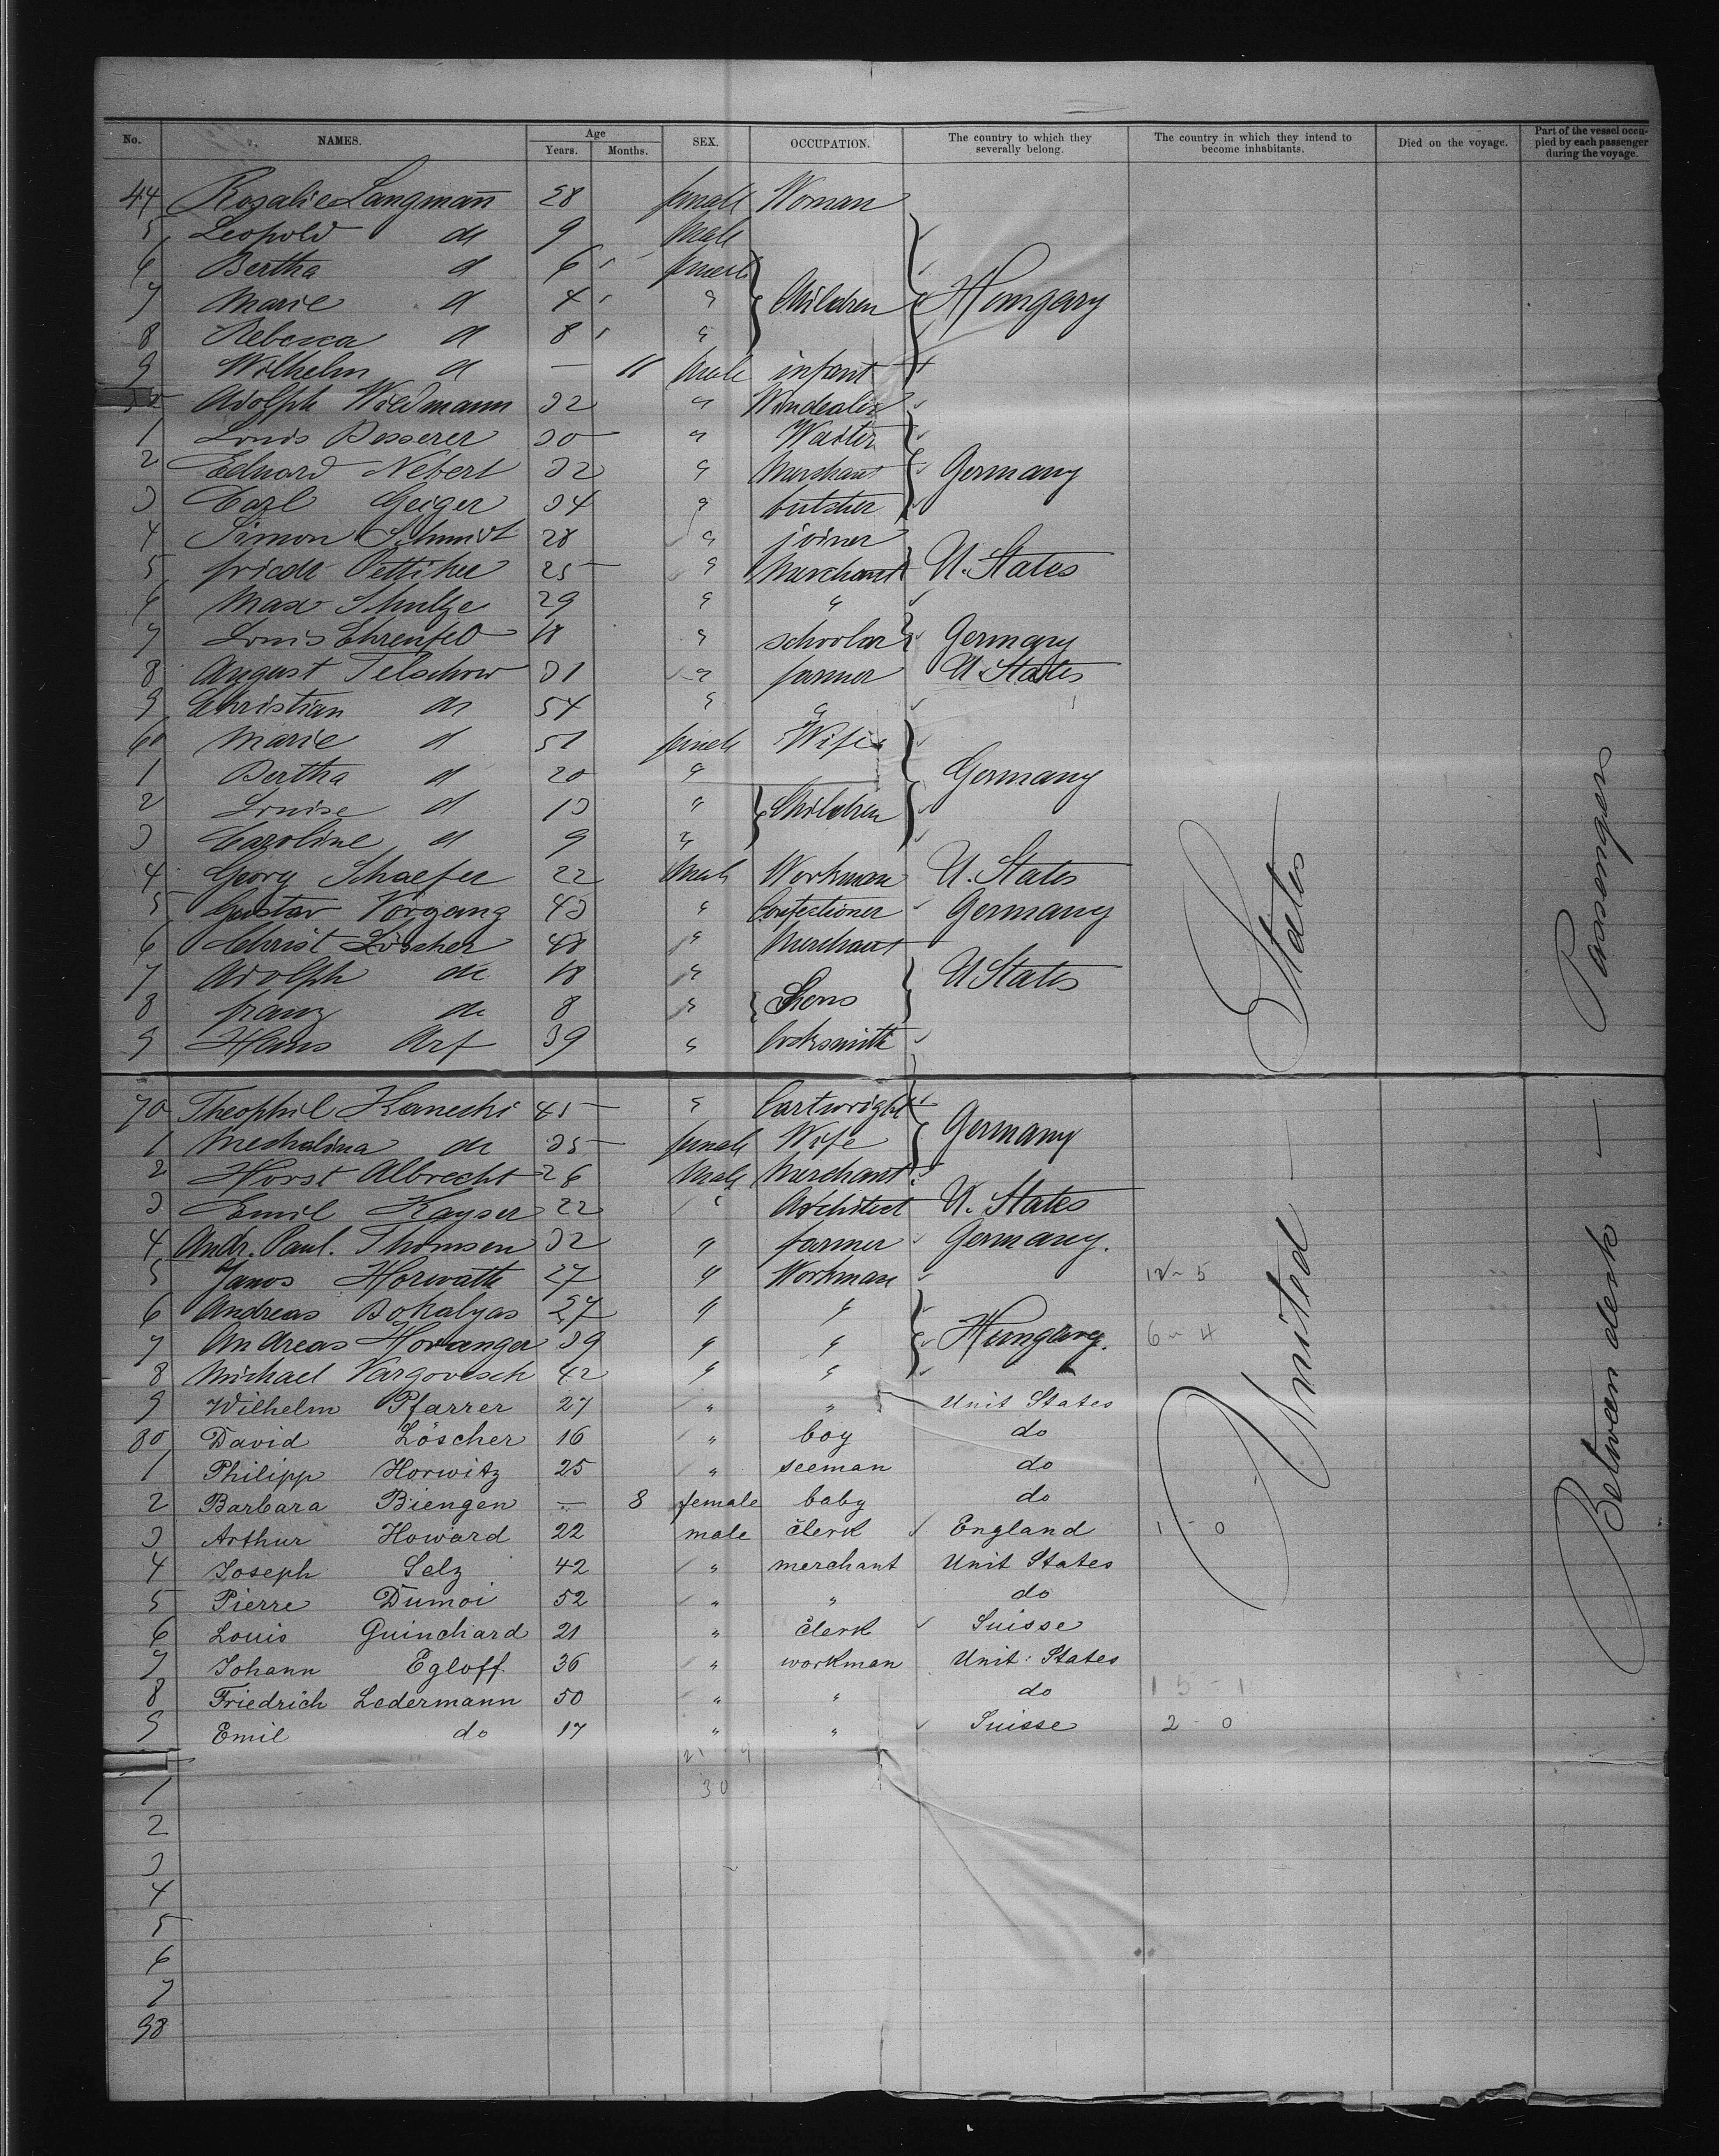 No. NAMES. Age Years. Months. SEX. OCCUPATION. The country to which they severally belong. The country in which they intend to become inhabitants. Died on the voyage. Part of the vessel occupied by each passenger during the voyage.
44 Rosalie Langmann 28 female Woman
5 Leopold do 9 Male
6 Bertha d 6 female
7 Marie d 4 " Children Hungary
8 Rebecca d 8 "
9 Wilhelm d — 11 Male infant
50 Adolph Wiedmann 32 "
1 Louis Besserer 30 " Waiter
2 Eduard Nebert 32 " Merchant Germany
3 Carl Geiger 34 " butcher
4 Simon Schmidt 28 " joiner
5 friedr 25 " Merchant U. States
6 Max Schultze 29 " "
7 Louis Ehrenfeld 18 " schoolar Germany
8 August Telschow 31 " farmer U States
9 Christian do 54 " "
60 Marie d 51 female Wife
1 Bertha d 20 " Germany
2 Louise d 13 " Children
3 Caroline d 9 "
4 Georg Schaefer 22 Male Workman U. States
5 Gustav Vorgang 43 " Confectioner Germany
6 Christ Löscher 48 " Merchant
7 Adolph do 18 " U States
8 franz do 8 " Sons
9 Hans Arf 39 " locksmith
70 Theophil Kanecki 45 " Cartwright
1 Mechalina do 35 female Wife Germany
2 Horst Albrecht 26 Male Merchant
3 Emil Kayser 22 " Architect U. States
4 Andr. Paul. Thomsen 32 " farmer Germany.
5 Janos Horwath 27 " Workman 12 - 5
6 Andreas Bokalyas 27 " "
7 Andreas Horanger 39 " " Hungary. 6 - 4
8 Michael Vargovesch 42 " "
9 Wilhelm Pfarrer 27 " " Unit States
80 David Löscher 16 " boy do
1 Philipp Horwitz 25 " seeman do
2 Barbara Biengen — 8 female baby do
3 Arthur Howard 22 male clerk England 1 - 0
4 Joseph Selz 42 " merchant Unit States
5 Pierre Dumoi 52 " " do
6 Louis Guinchard 21 " clerk Suisse
7 Johann Egloff 36 " workman Unit: States
8 Friedrich Ledermann 50 " " do 15 - 1
9 Emil do 17 " " Suisse 2 - 0
21 9
1 30
2
3
4
5
6
7
98
United States
Betwean deck Passengers